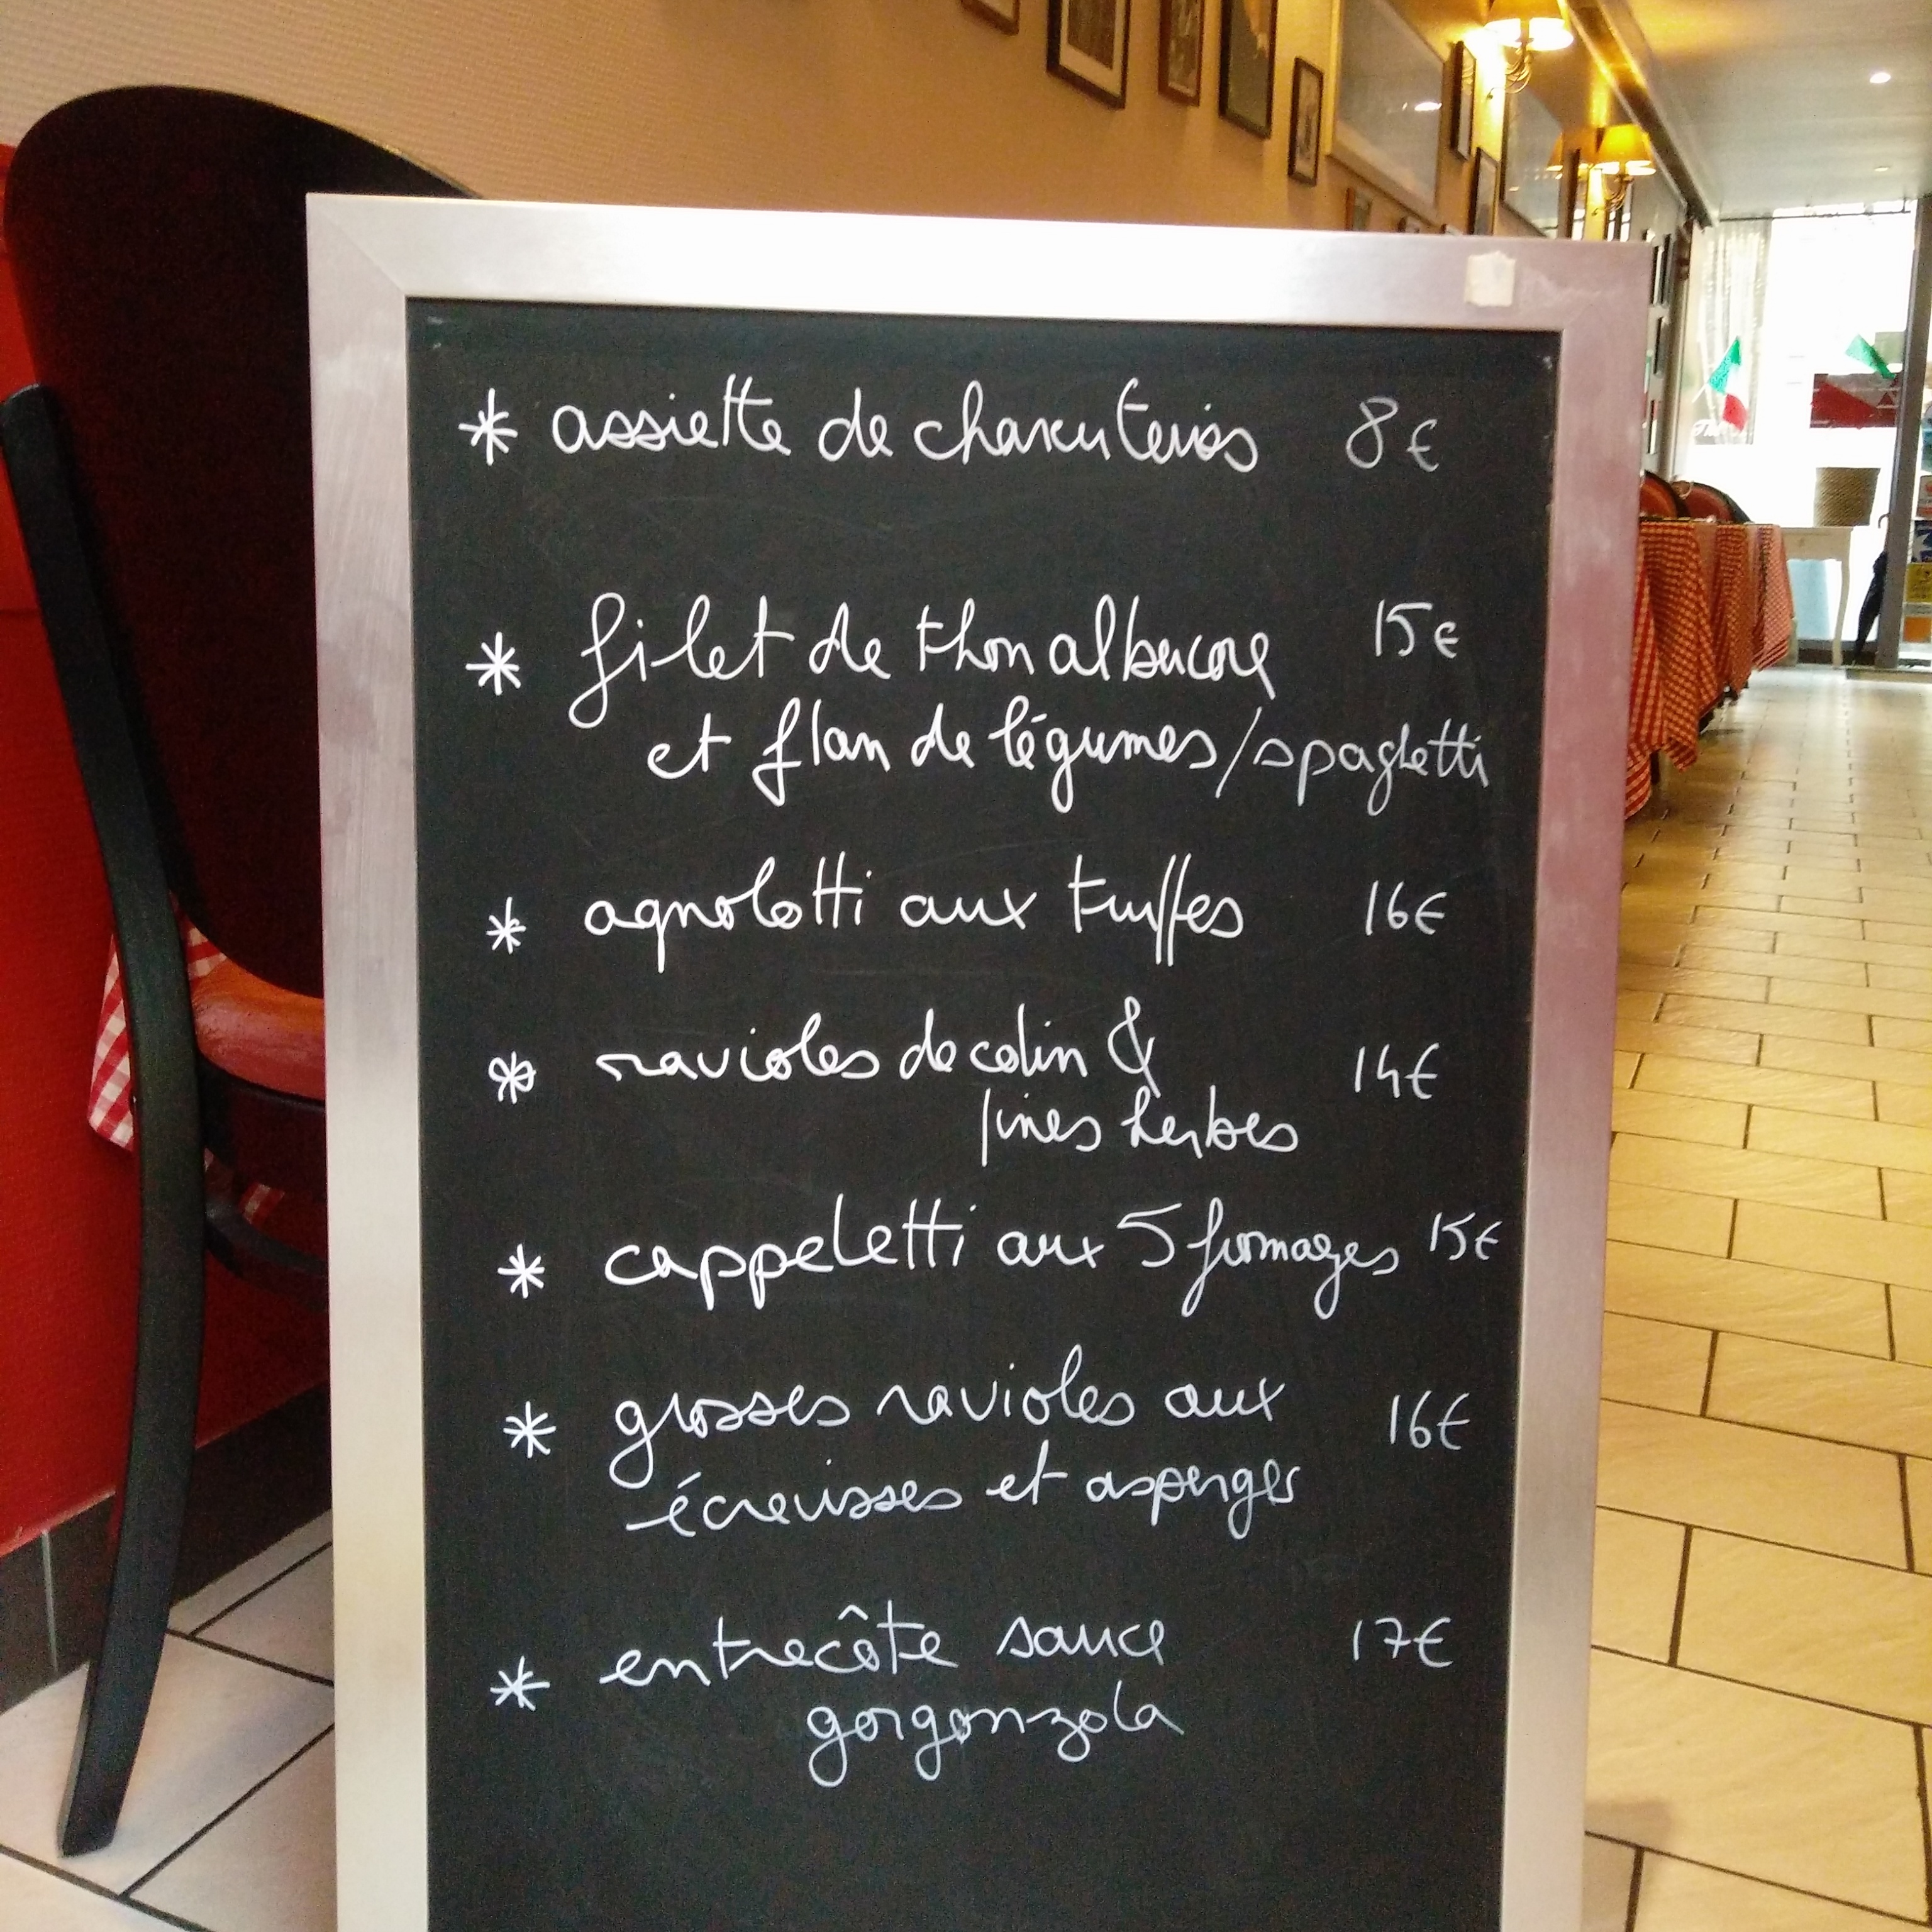 * assiette de charcuteries 8€
* filet de thon albacore 15€
et flan de légumes/spaghetti
* agnolotti aux truffes 16€
* ravioles de colin &
fines herbes 14€
* cappeletti aux 5 fromages 15€
* grosses ravioles aux 16€
écrevisses et asperges
* entrecôte sauce 17€
gorgonzola